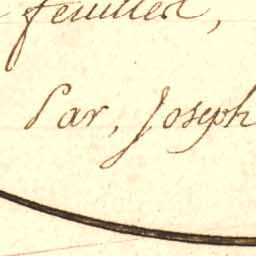 feuillet,
Par, Joseph